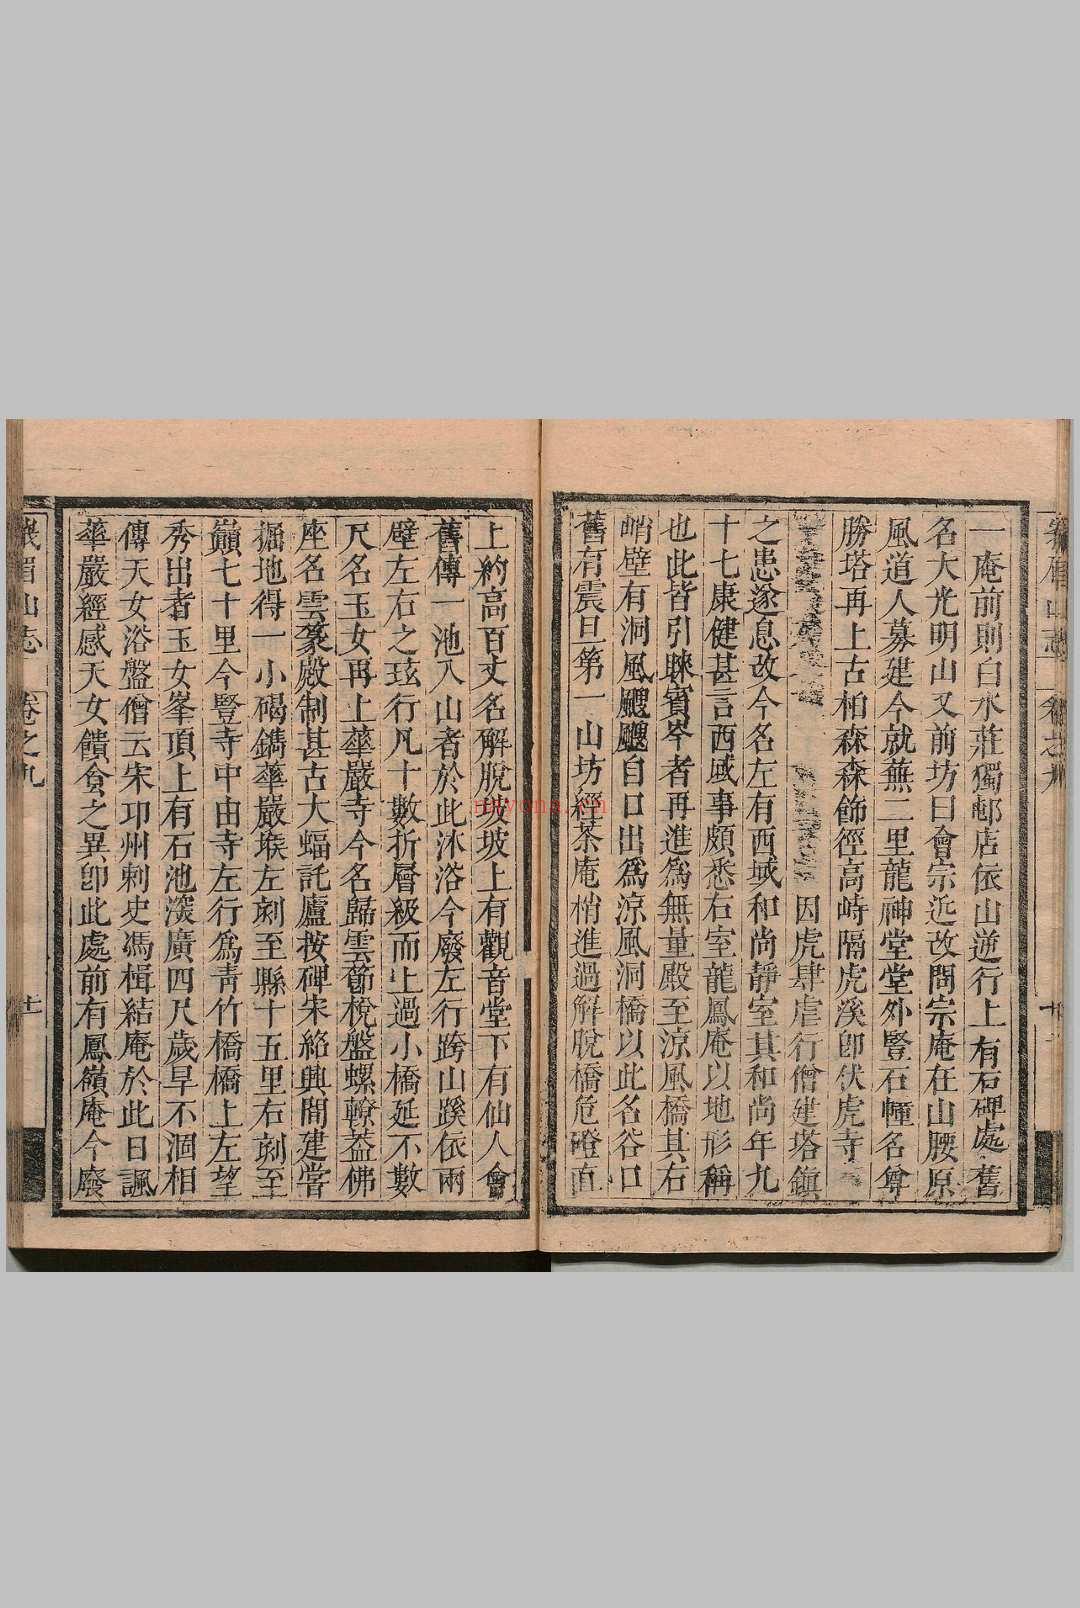 一庵前則白水莊獨邨店依山逆行上有石碑處舊
名大光明山又前坊曰會宗近改問宗庵在山腰原
風道人募建今就蕪二里龍神堂堂外豎石幢名尊
勝塔再上古柏森森飾徑高峙隔虎溪卽伏虎寺
因虎肆虐行僧建塔鎮
之患遂息改今名左有西域和尚靜室其和尚年九
十七康健甚言西域事頗悉右室龍鳳庵以地形稱
也此皆引睞賓岑者再進爲無量殿至涼風橋其右
峭壁有洞風颼颼自口出爲涼風洞橋以此名谷口
舊有震旦第一山坊經茶庵稍進過解脫橋危磴直
上約高百丈名解脫坡坡上有觀音堂下有仙人會
舊傳一池入山者於此沐浴今廢左行跨山蹊依兩
壁左右之玹行凡十數折層級而上過小橋延不數
尺名玉女再上華嚴寺今名歸雲節梲盤螺轑葢佛
座名雲篆殿制甚古大蝠託廬按碑宋紹興間建嘗
掘地得一小碣鐫華嚴堠左刻至縣十五里右刻至
巔七十里今豎寺中由寺左行爲靑竹橋橋上左望
秀出者玉女峯頂上有石池深廣四尺歲旱不涸相
傳天女浴盤僧云宋邛州刺史馮楫結庵於此日諷
華嚴經感天女饋食之異卽此處前有鳳嶺庵今廢
峩眉山志
卷之九
nayona.cn